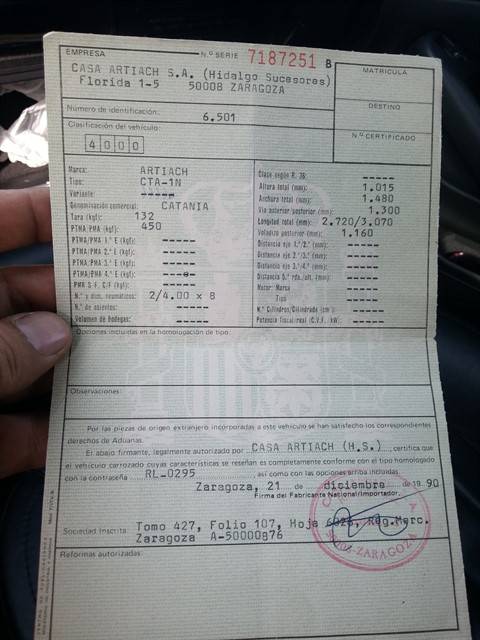 EMPRESA
N.º SERIE 7187251 B
CASA ARTIACH S.A. (Hidalgo Sucesores)
Florida 1-5 50008 ZARAGOZA
MATRICULA
DESTINO
N.º CERTIFICADO
Número de identificación:
6.501
Clasificación del vehículo:
4000
Marca: ARTIACH
Tipo: CTA-1N
Variante: -----
Denominación comercial: CATANIA
Tara (kgf): 132
PTMA/PMA (kgf): 450
PTMA/PMA 1.º E (kgf): -----
PTMA/PMA 2.º E (kgf): -----
PTMA/PMA 3.º E (kgf): -----
PTMA/PMA 4.º E (kgf): -----
PMR S.F. C/F (kgf) -----
N.º y dim. neumáticos: 2/4.00 x 8
N.º de asientos: -----
Volumen de bodegas: -----
Clase según R. 36: -----
Altura total (mm): 1.015
Anchura total (mm): 1.480
Vía anterior/posterior (mm): 1.300
Longitud total (mm): 2.720/3.070
Voladizo posterior (mm): 1.160
Distancia eje 1.º/2.º: -----
Distancia eje 2.º/3.º: -----
Distancia eje 3.º/4.º: -----
Distancia 5.ª rda./alt. (mm): -----
Motor: Marca -----
Tipo -----
N.º Cilindros/Cilindrada (cm³) -----
Potencia fiscal/real (C.V.F./kW) -----
Opciones incluidas en la homologación de tipo:
Observaciones:
Por las piezas de origen extranjero incorporadas a este vehículo se han satisfecho los correspondientes
derechos de Aduanas.
El abajo firmante, legalmente autorizado por CASA ARTIACH (H.S.), certifica que
el vehículo carrozado cuyas características se reseñan es completamente conforme con el tipo homologado
con la contraseña RL-0295, así como con las opciones arriba incluidas.
Zaragoza, 21 de diciembre de 19 90
Firma del Fabricante Nacional/Importador.
Sociedad Inscrita Tomo 427, Folio 107, Hoja 6028, Reg.Merc.
Zaragoza A-50000876
50008-ZARAGOZA
Reformas autorizadas: